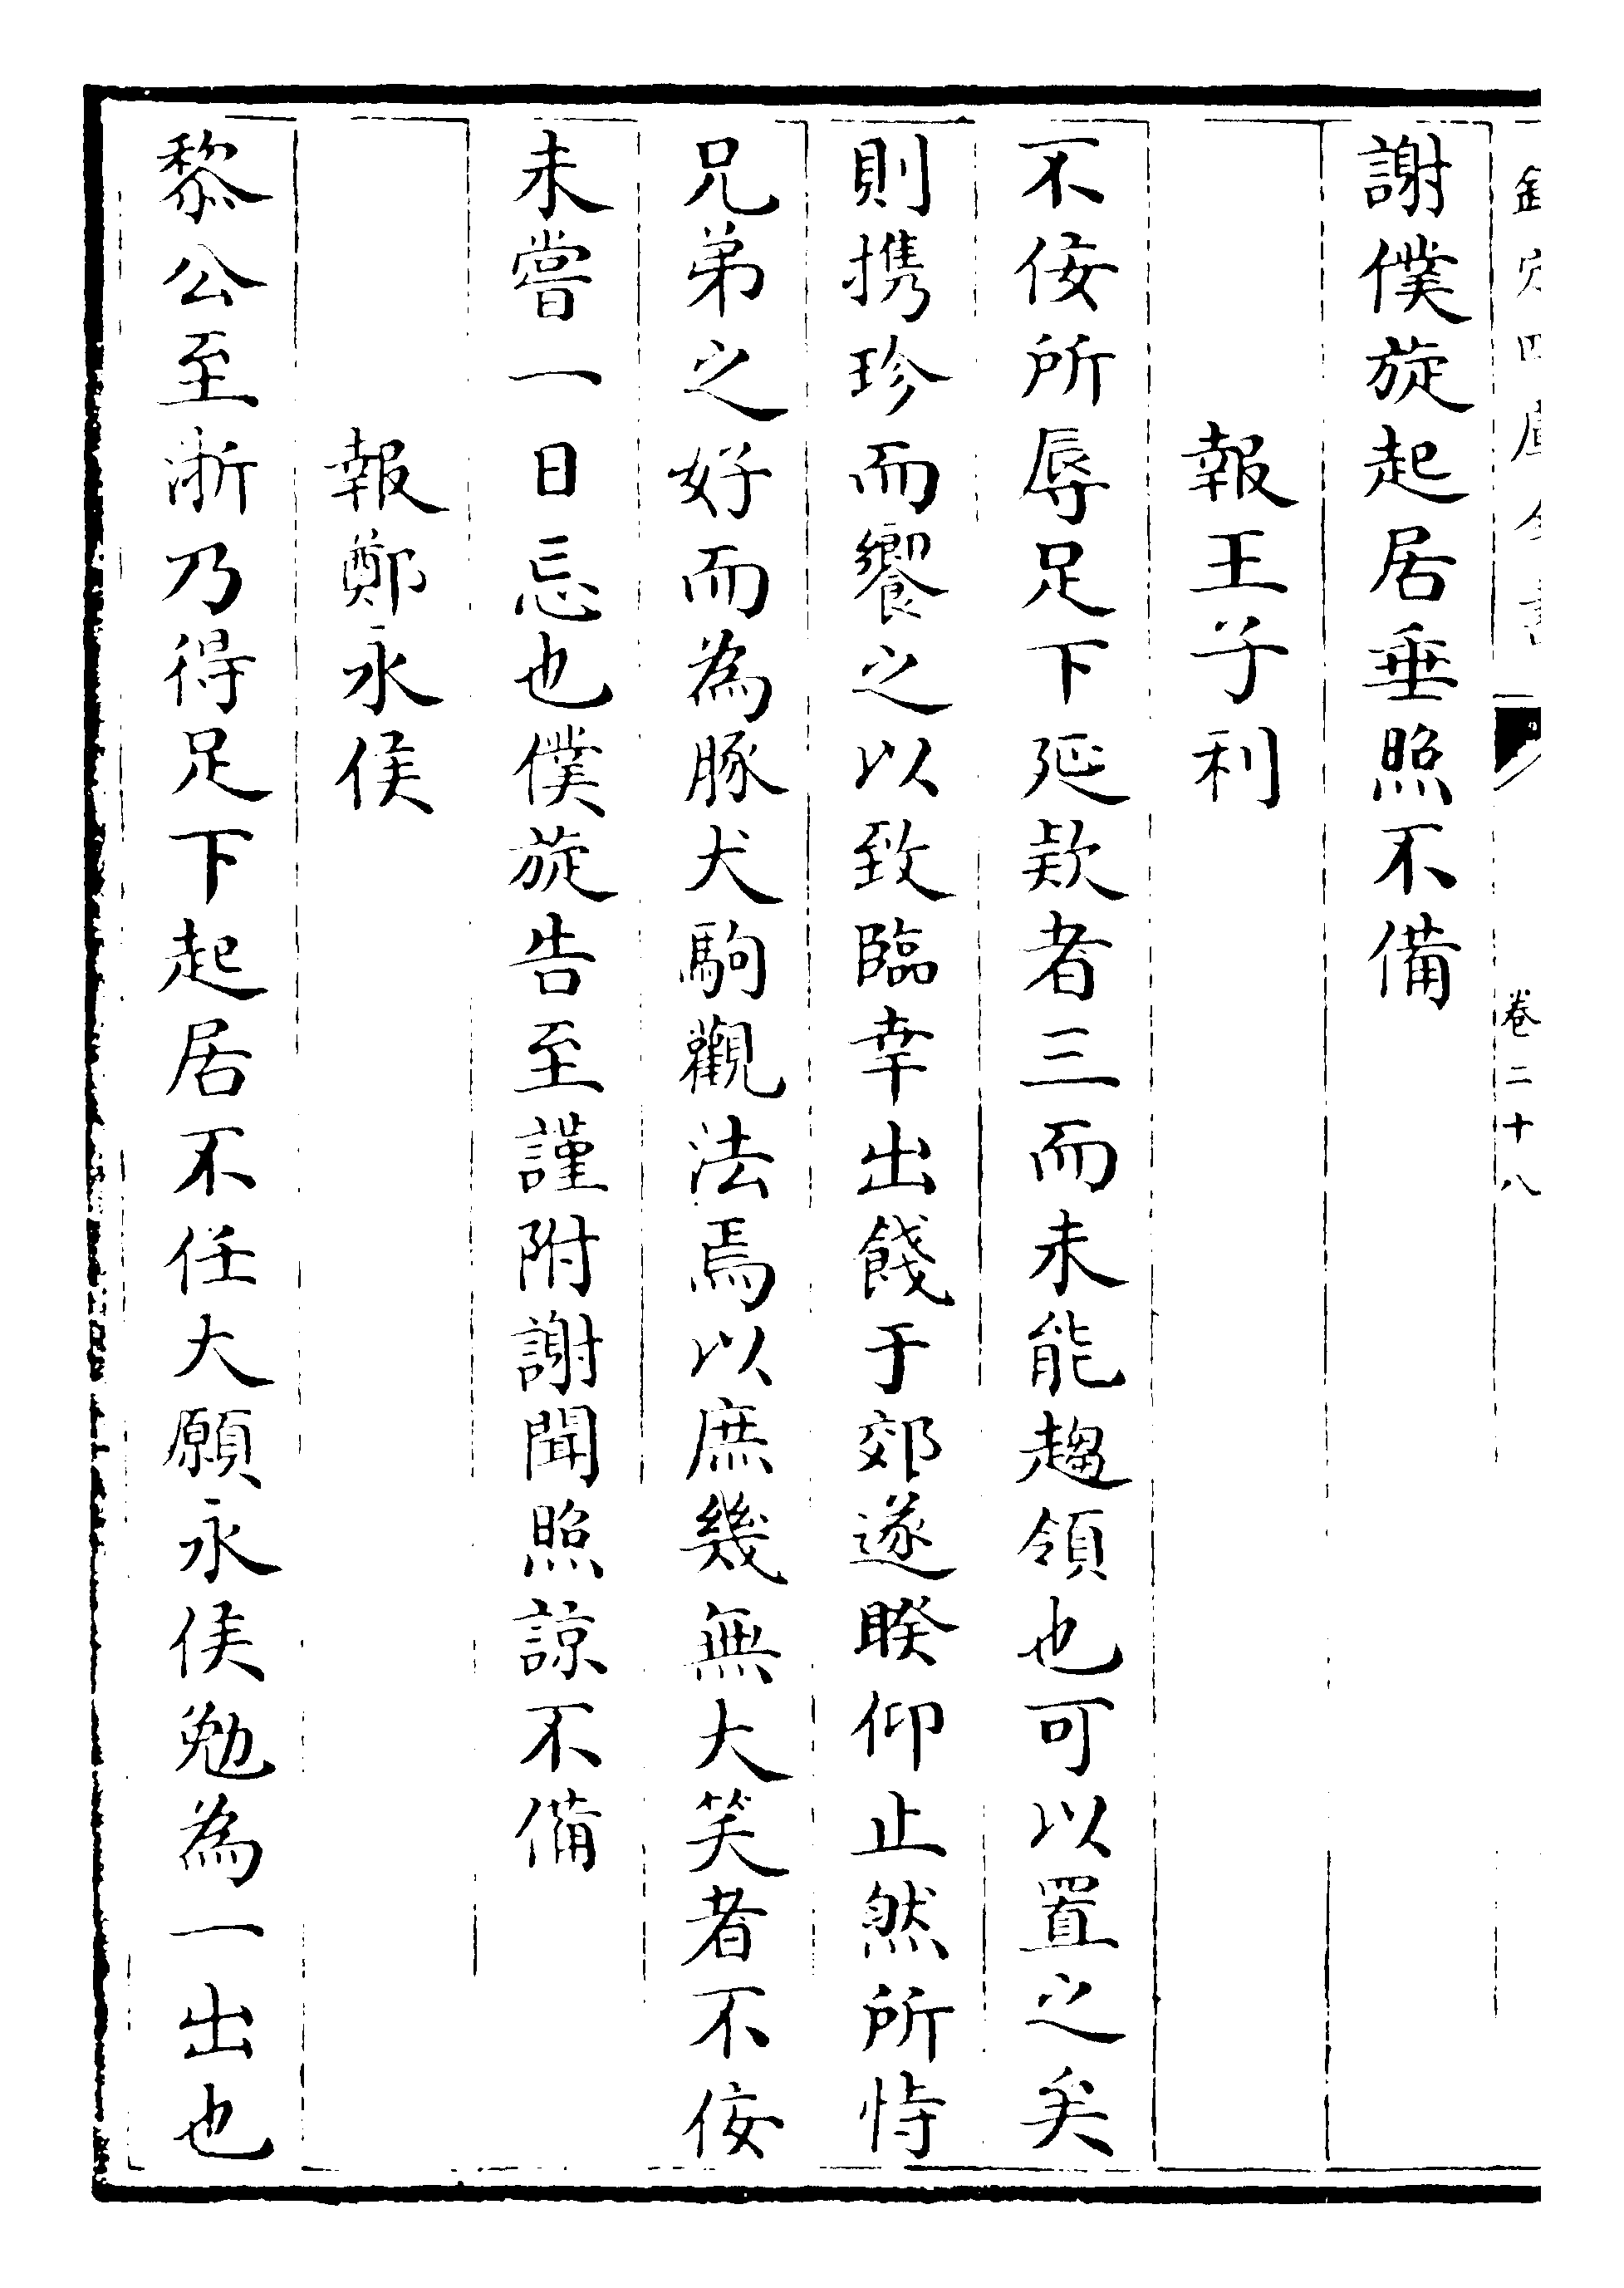 欽定四庫全書 卷二十八
謝僕旋起居垂照不備
報王子利
不佞所辱足下延欵者三而未能趨領也可以置之矣
則携珍而饗之以致臨幸出餞于郊遂睽仰止然所恃
兄弟之好而為豚犬駒觀法焉以庶幾無大笑者不佞
未嘗一日忘也僕旋告至謹附謝聞照諒不備
報鄭永侯
黎公至淅乃得足下起居不任大願永侯勉為一出也